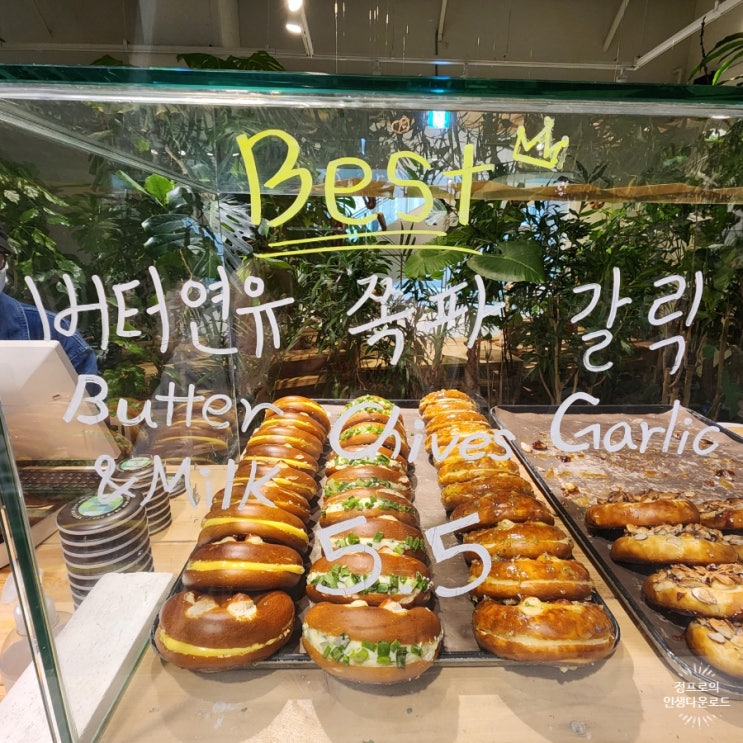 Best
버터연유 쪽파 갈릭
Butter Chives Garlic
& Milk
5.5
점프로의
인생다운로드